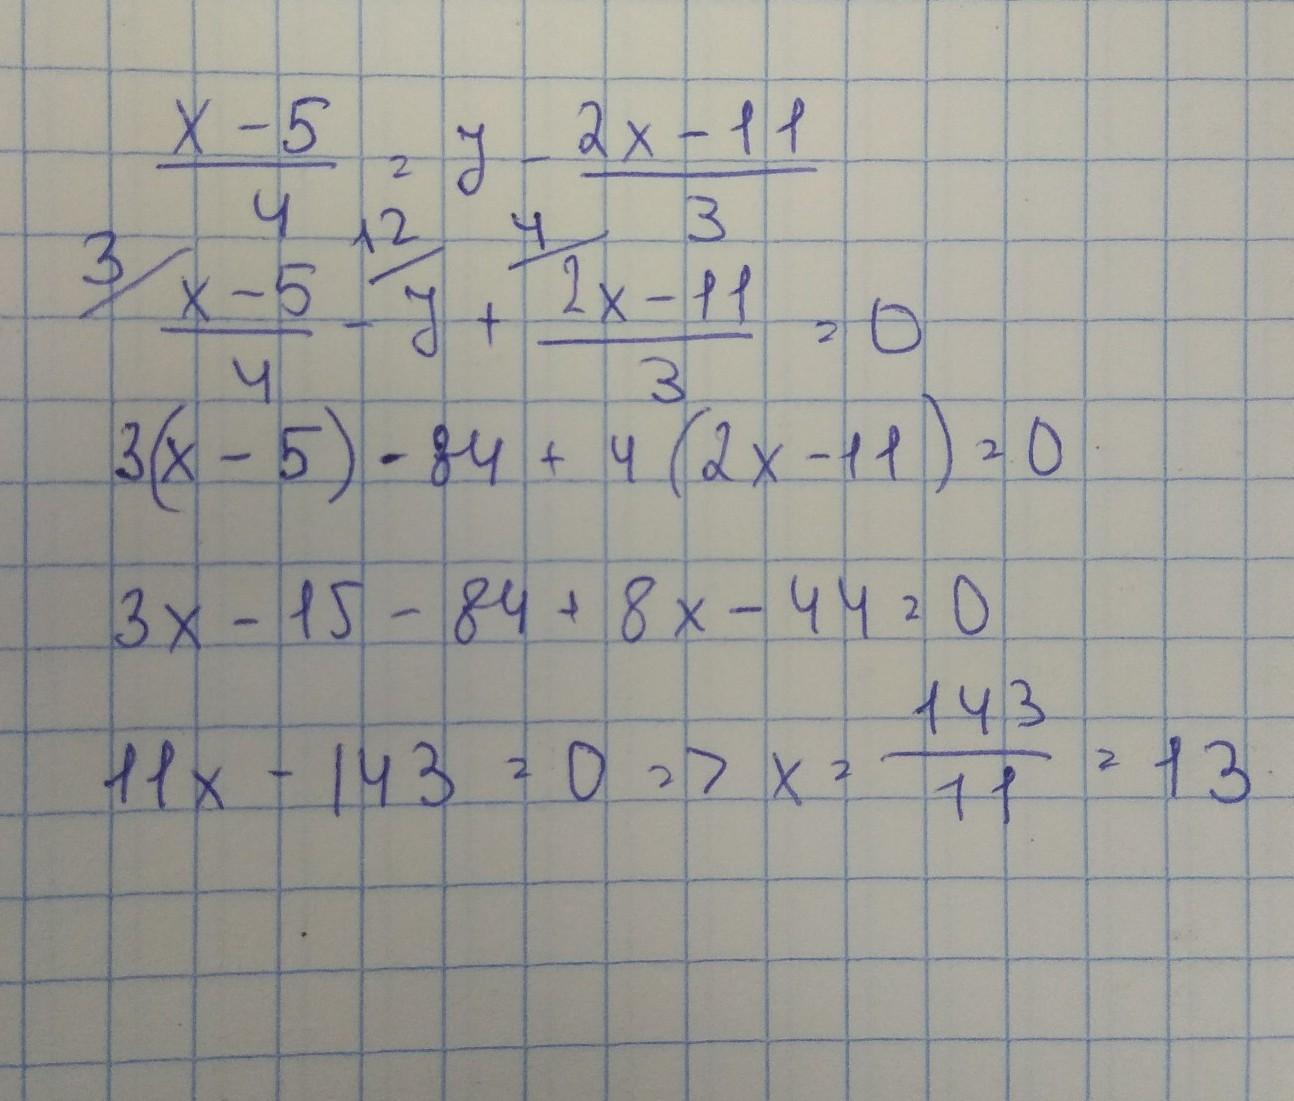 (x-5)/4 = y - (2x-11)/3
3/ (x-5)/4 - 12/ y + 4/ (2x-11)/3 = 0
3(x-5) - 84 + 4(2x-11) = 0
3x - 15 - 84 + 8x - 44 = 0
11x - 143 = 0 => x = 143/11 = 13